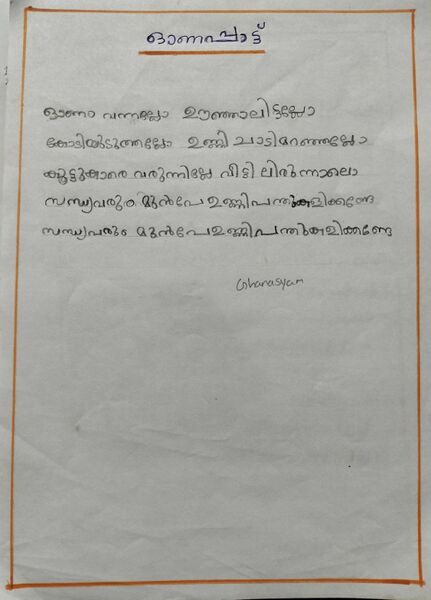 ഓണപ്പാട്ട്
ഓണം വന്നല്ലോ ഊഞ്ഞാലിട്ടല്ലോ
കോടിയുടുത്തല്ലോ ഉണ്ണി ചാടിമറഞ്ഞല്ലോ
കൂട്ടുകാരെ വരുന്നില്ലേ വീട്ടി ലിരുന്നാലൊ
സന്ധ്യവരും മുൻപേ ഉണ്ണിപന്തുകളിക്കണ്ടേ
സന്ധ്യവരും മുൻപേ ഉണ്ണിപന്തുകളിക്കണ്ടേ
Ghanasyam